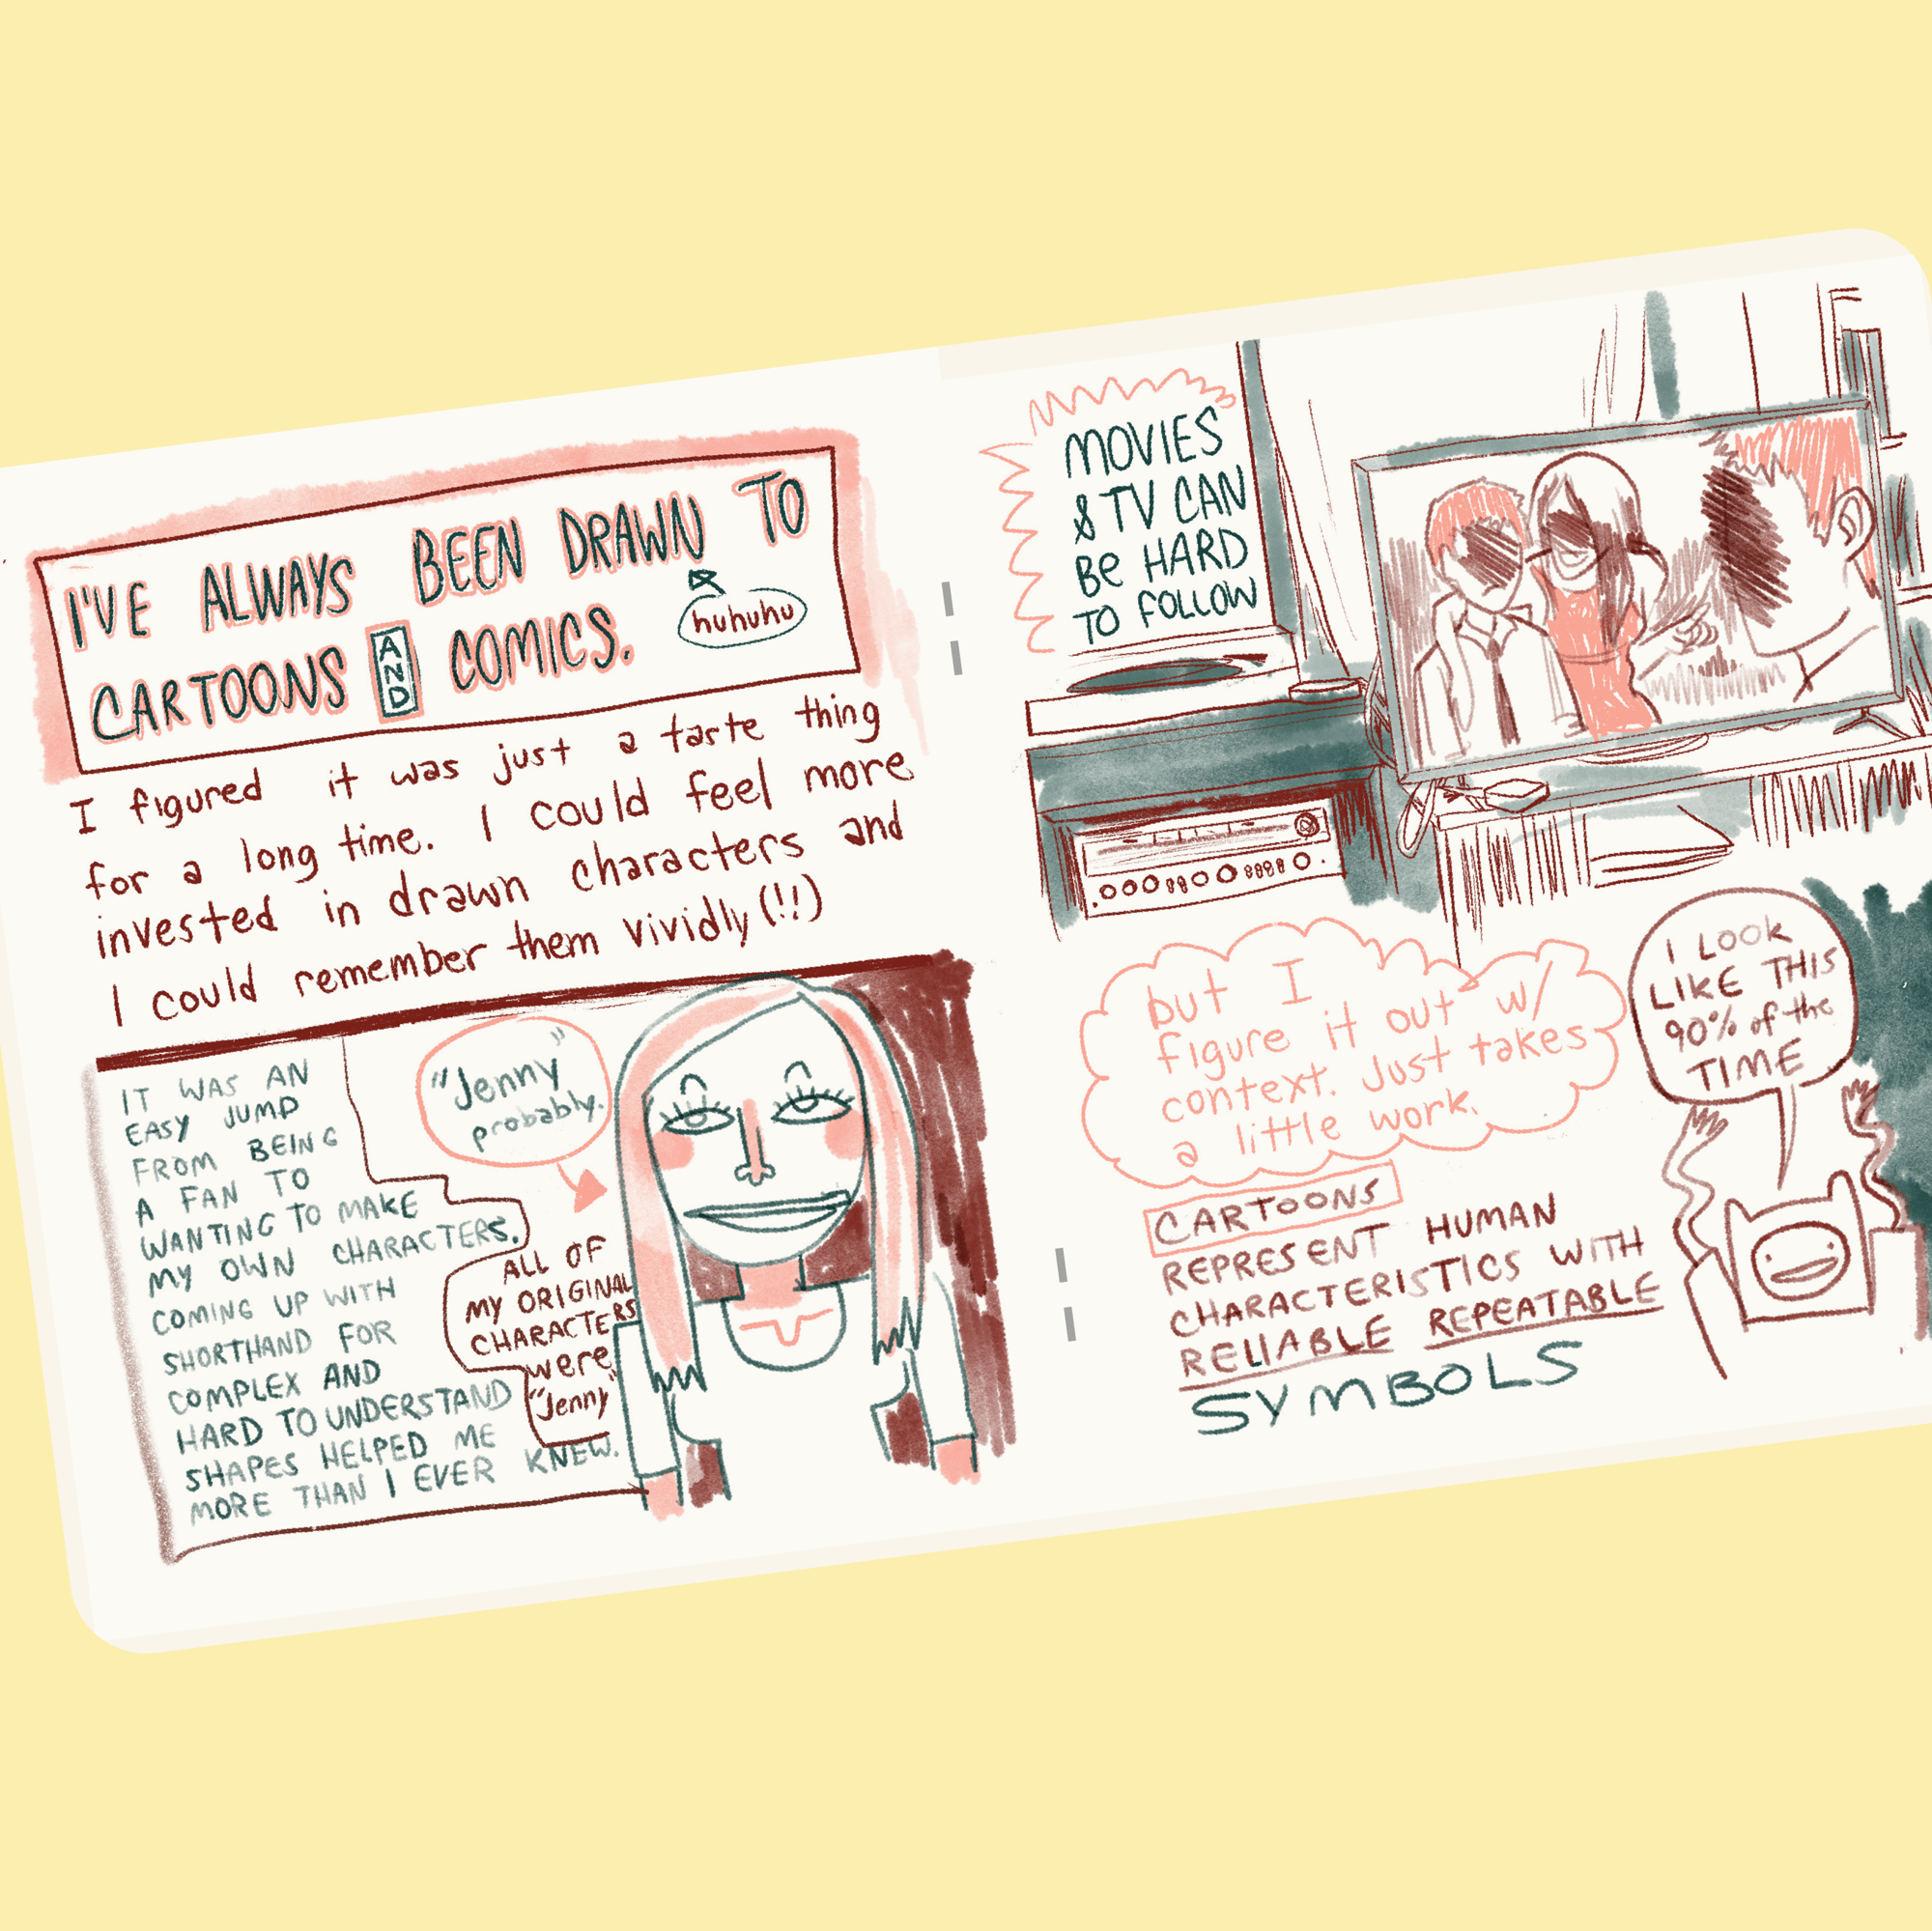 I'VE ALWAYS BEEN DRAWN TO
CARTOONS AND COMICS.
huhuhu
I figured it was just a taste thing
for a long time. I could feel more
invested in drawn characters and
I could remember them vividly (!!)
IT WAS AN
EASY JUMP
FROM BEING
A FAN TO
WANTING TO MAKE
MY OWN CHARACTERS.
COMING UP WITH
SHORTHAND FOR
COMPLEX AND
HARD TO UNDERSTAND
SHAPES HELPED ME
MORE THAN I EVER KNEW.
"Jenny"
probably.
ALL OF
MY ORIGINAL
CHARACTERS
were
"Jenny"
MOVIES
& TV CAN
Be HARD
TO FOLLOW
but I
figure it out w/
context. Just takes
a little work.
I LOOK
LIKE THIS
90% of the
TIME
CARTOONS
REPRESENT HUMAN
CHARACTERISTICS WITH
RELIABLE REPEATABLE
SYMBOLS